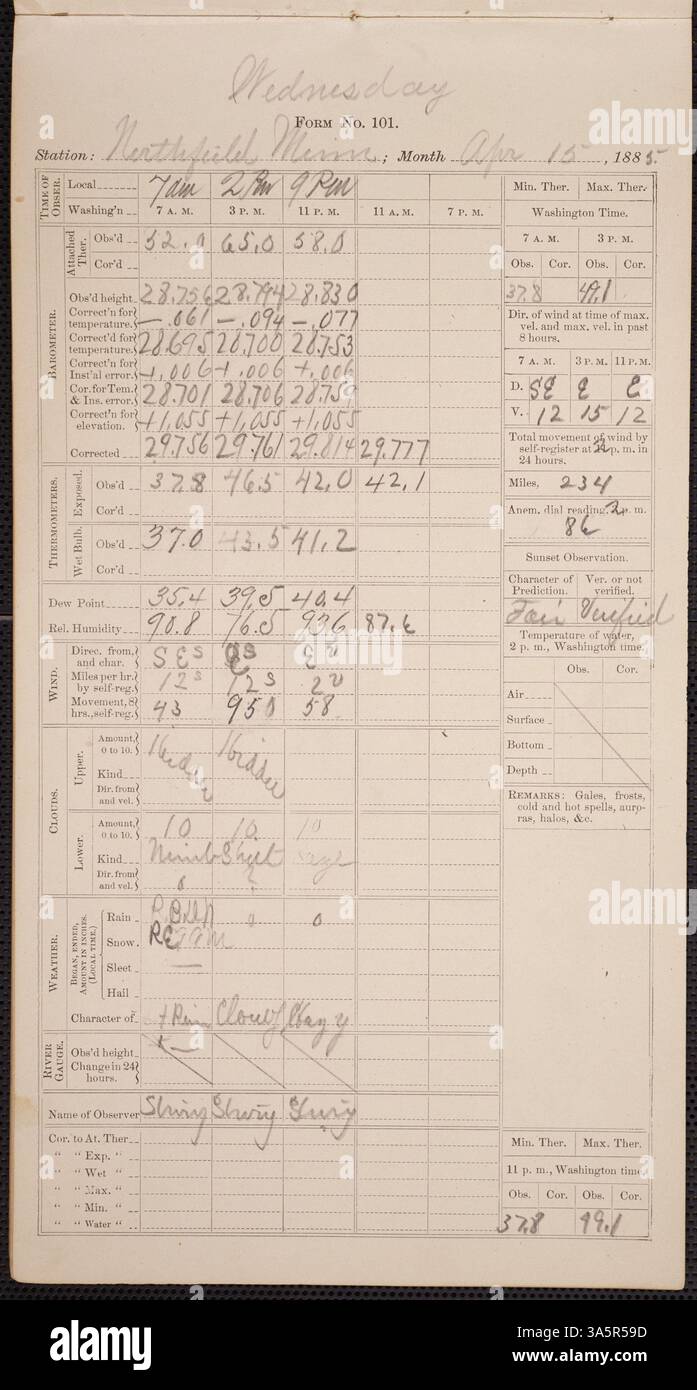 Wednesday
FORM NO. 101.
Station: Northfield Minn; Month Apr 15, 1885.
TIME OF OBSER. Local 7 am 2 Pm 9 Pm
Washing'n 7 A. M. 3 P. M. 11 P. M. 11 A. M. 7 P. M.
BAROMETER.
Attached Ther. Obs'd 52.0 65.0 58.0
Cor'd
Obs'd height 28.756 28.794 28.830
Correct'n for temperature. -.061 -.094 -.077
Correct'd for temperature. 28.695 28.700 28.753
Correct'n for Inst'al error. +.006 +.006 +.006
Cor. for Tem. & Ins. error. 28.701 28.706 28.759
Correct'n for elevation. +1,055 +1,055 +1,055
Corrected 29.756 29.761 29.814 29.777
THERMOMETERS.
Exposed. Obs'd 37.8 46.5 42.0 42.1
Cor'd
Wet Bulb. Obs'd 37.0 43.5 41.2
Cor'd
Dew Point 35.4 39.5 40.4
Rel. Humidity 90.8 76.5 93.6 87.
WIND.
Direc. from, and char. SE s s E
Miles per hr. by self-reg. 12 s 12 s 2
Movement, 8 hrs., self-reg. 43 95 58
CLOUDS.
Upper. Amount, 0 to 10.
Kind
Dir. from and vel.
Lower. Amount, 0 to 10. 10 10 10
Kind
Dir. from and vel. 0
WEATHER.
BEGAN, ENDED, AMOUNT IN INCHES. (LOCAL TIME.)
Rain 0 0
Snow
Sleet —
Hail
Character of Rain Cloudy Hazy
RIVER GAUGE. Obs'd height
Change in 24 hours.
Name of Observer
Cor. to At. Ther.
" " Exp. "
" " Wet "
" " Max. "
" " Min. "
" " Water "
Min. Ther. Max. Ther.
Washington Time.
7 A. M. 3 P. M.
Obs. Cor. Obs. Cor.
37.8 49.1
Dir. of wind at time of max. vel. and max. vel. in past 8 hours.
7 A. M. 3 P. M. 11 P. M.
D. SE E E
V. 12 15 12
Total movement of wind by self-register at 2 p. m. in 24 hours.
Miles, 234
Anem. dial reading, 2 p. m.
Sunset Observation.
Character of Prediction. Ver. or not verified.
Fair Verified
Temperature of water, 2 p. m., Washington time.
Obs. Cor.
Air
Surface
Bottom
Depth
REMARKS: Gales, frosts, cold and hot spells, auroras, halos, &c.
Min. Ther. Max. Ther.
11 p. m., Washington time.
Obs. Cor. Obs. Cor.
37.8 49.1
alamy
Image ID: 3A5R59D
www.alamy.com